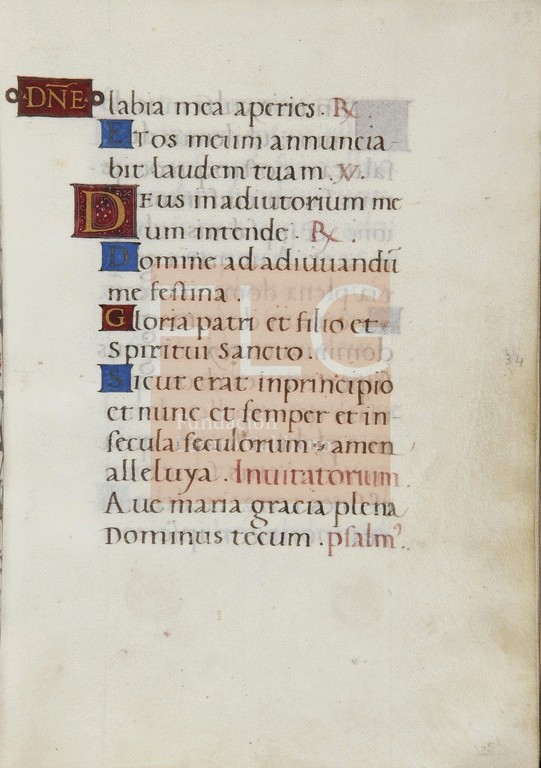 DÑE labia mea aperies. ℟
Et os meum annuncia
bit laudem tuam. ℣.
Deus in adiutorium me
um intende. ℟.
Domine ad adiuuandū
me festina.
Gloria patri et filio et
Spiritui Sancto.
Sicut erat in principio
et nunc et semper et in
secula seculorum amen
alleluya. Inuitatorium.
Aue maria gracia plena
Dominus tecum. psalm⁹.
34
FLG
Fundación